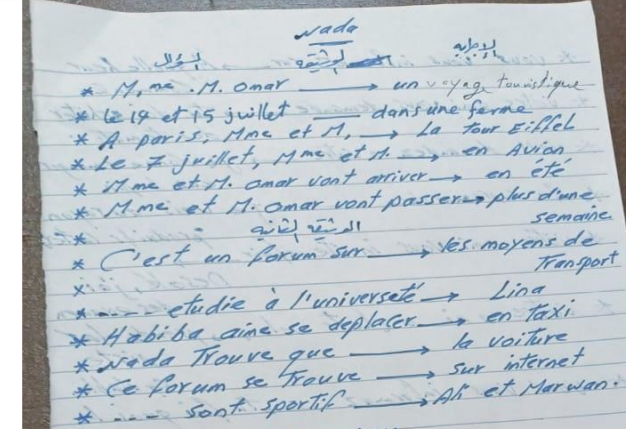 Nada
السؤال الوثيقة الإجابة
* M,me. M. Omar → un voyage touristique
* Le 14 et 15 juillet — dans une ferme
* A paris, Mme et M, → La Tour Eiffel
* Le 7 juillet, Mme et M. → en Avion
* Mme et M. Omar vont arriver → en été
* Mme et M. Omar vont passer → plus d'une semaine
* الوثيقة الثانية
* C'est un forum sur → les moyens de Transport
x
* ---- etudie à l'universeté → Lina
* Habiba aime se deplacer → en Taxi
* Nada Trouve que → la voiture
* Ce forum se Trouve → sur internet
* ---- sont sportif → Ali et Marwan.